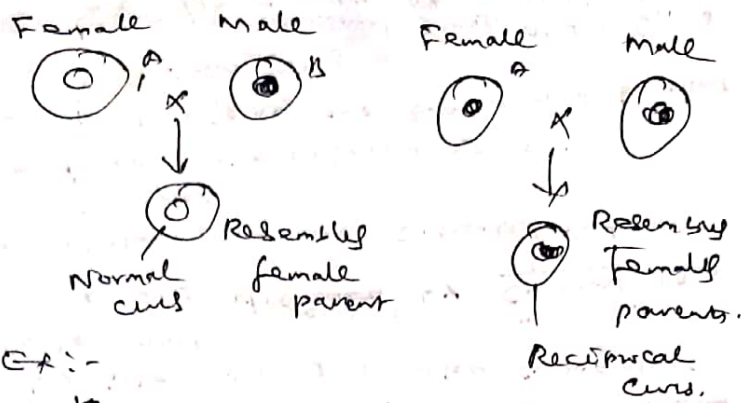 Female Male
A B
x
Resembles
female
parent
Normal
cross
Female Male
A
x
Resembles
Female
parents.
Reciprocal
cross.
Ex:-